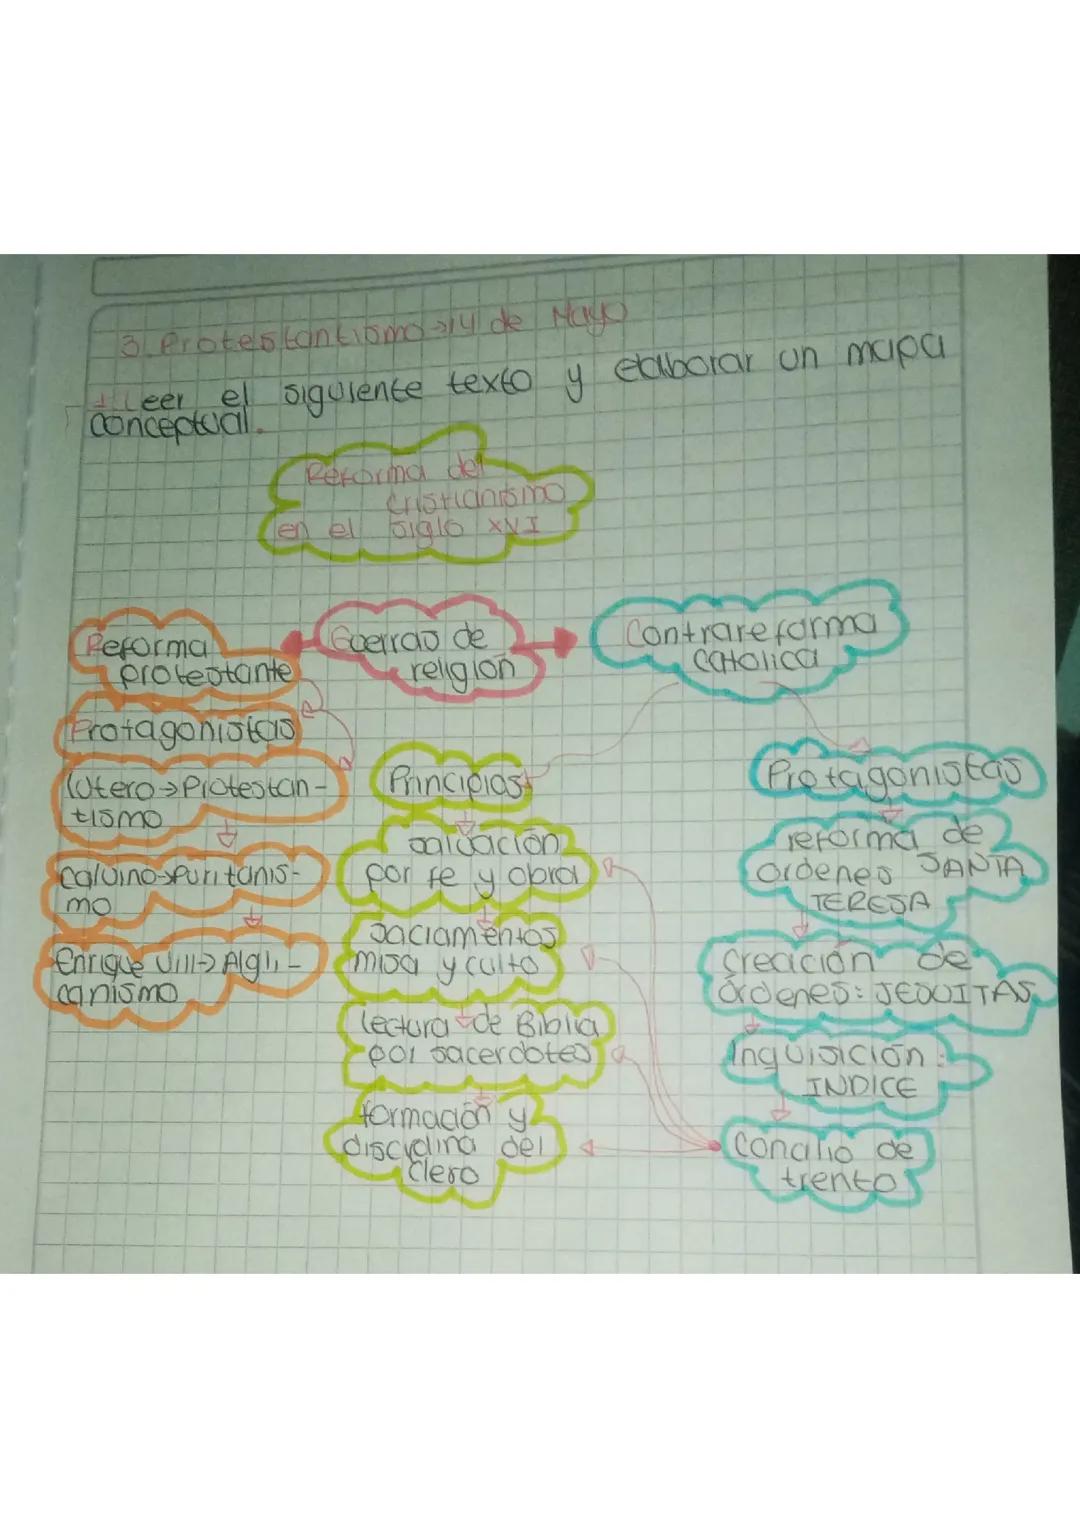 3. Protestantismo → 14 de Mayo
1. Leer el siguiente texto y elaborar un mapa
conceptual.
Reforma del
cristianismo
en el siglo XVI
Reforma
protestante
Guerras de
religión
Contrareforma
catolica
Protagonistas
Lutero → Protestan-
tismo
Calvino → Puritanis-
mo
Enrique VIII → Algli-
canismo
Principios
Salvación
por fe y obra
Sacramentos
misa y culto
Lectura de Biblia
por sacerdotes
formación y
disciplina del
clero
Protagonistas
reforma de
ordenes SANTA
TERESA
Creación de
órdenes: JESUITAS
Inquisición:
INDICE
Concilio de
trento